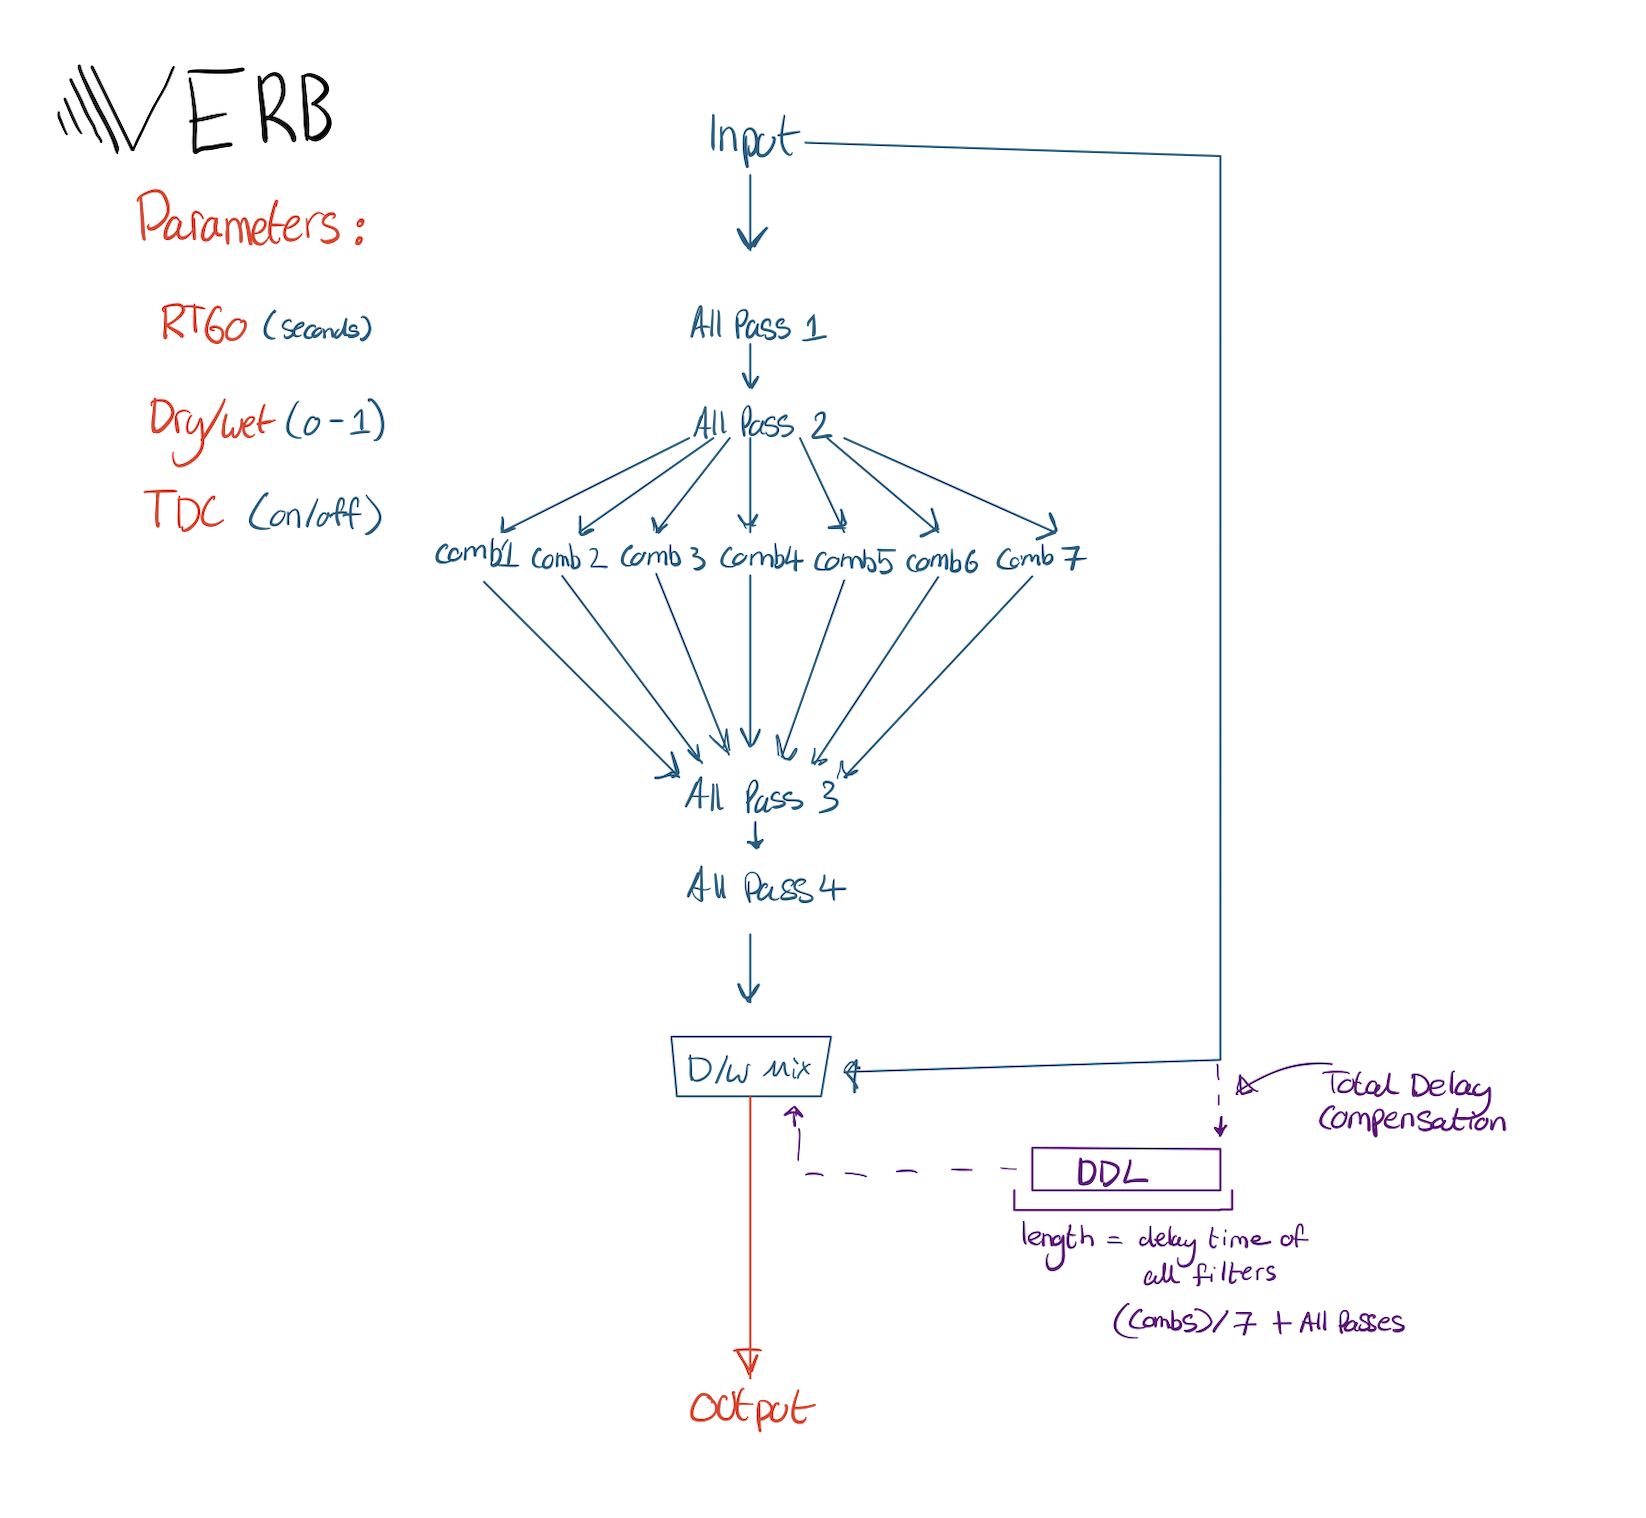 VERB
Parameters:
RT60 (seconds)
Dry/wet (0-1)
TDC (on/off)
Input
All Pass 1
All Pass 2
Comb1 Comb 2 Comb 3 Comb4 Comb5 Comb6 Comb 7
All Pass 3
All Pass 4
D/W Mix
Total Delay
Compensation
DDL
length = delay time of
all filters
(Combs)/7 + All Passes
Output